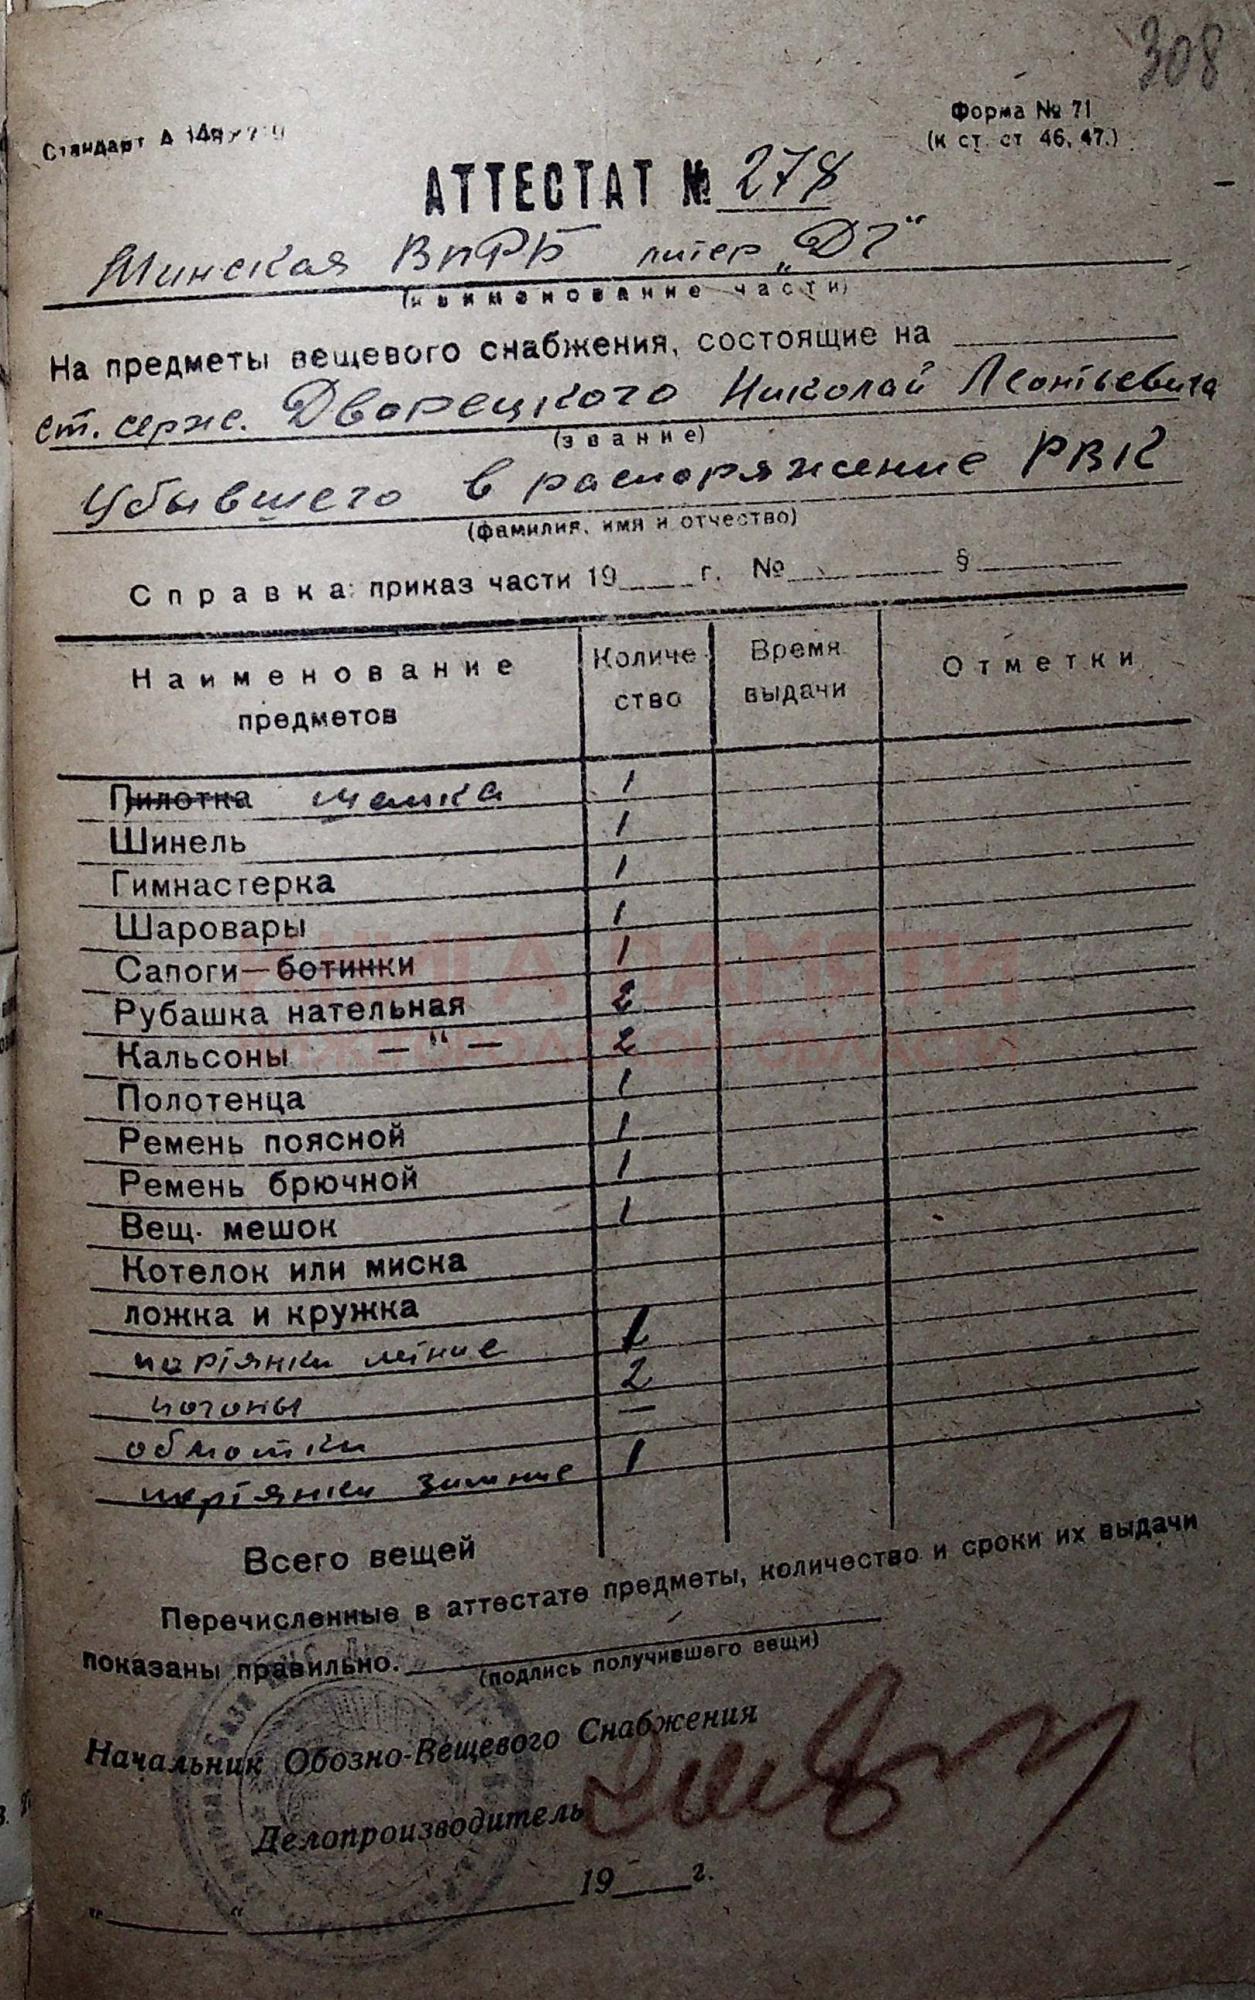 308
Стандарт А
Форма № 71
(к ст. ст 46, 47.)
АТТЕСТАТ № 278
Минская ВпРБ литер „Д2“
(наименование части)
На предметы вещевого снабжения, состоящие на
ст. серж. Дворецкого Николай Леонтьевича
(звание)
Убывшего в распоряжение РВК
(фамилия, имя и отчество)
Справка: приказ части 19 г. № §
Наименование предметов Количество Время выдачи Отметки
Пилотка шапка 1
Шинель 1
Гимнастерка 1
Шаровары 1
Сапоги—ботинки 1
Рубашка нательная 2
Кальсоны — " — 2
Полотенца 1
Ремень поясной 1
Ремень брючной 1
Вещ. мешок 1
Котелок или миска
ложка и кружка
портянки летние 1
погоны 2
обмотки —
портянки зимние 1
КНИГА ПАМЯТИ
НИЖЕГОРОДСКОЙ ОБЛАСТИ
Всего вещей
Перечисленные в аттестате предметы, количество и сроки их выдачи
показаны правильно.
(подпись получившего вещи)
Начальник Обозно-Вещевого Снабжения
Делопроизводитель
„ “ 19 г.